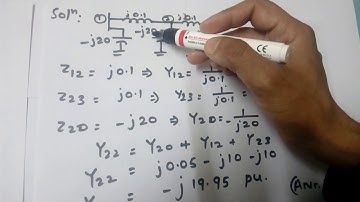 Solⁿ.
① j0.1 ② j0.1
-j20 -j20
Z12 = j0.1 ⇒ Y12 = 1/j0.1
Z23 = j0.1 ⇒ Y23 = 1/j0.1 =
Z20 = -j20 ⇒ Y20 = -1/j20
Y22 = Y20 + Y12 + Y23
Y22 = j0.05 - j10 - j10
= -j19.95 pu.
(Ans.